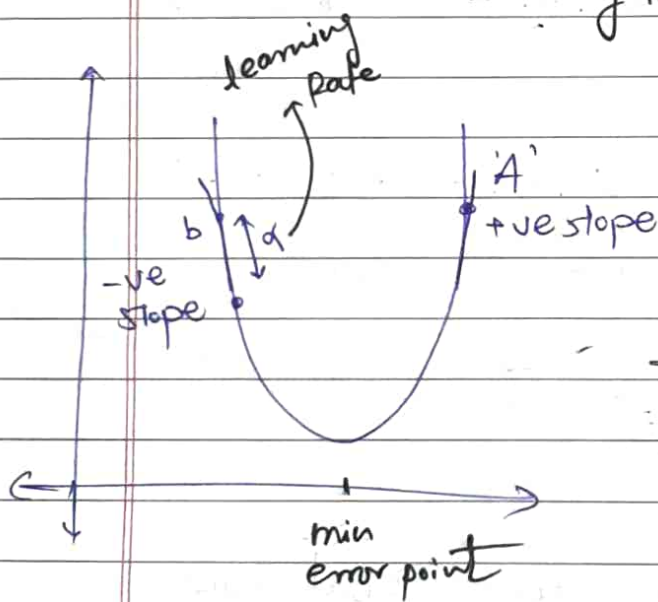 learning
Rate
'A'
+ve slope
b
α
-ve
slope
min
error point